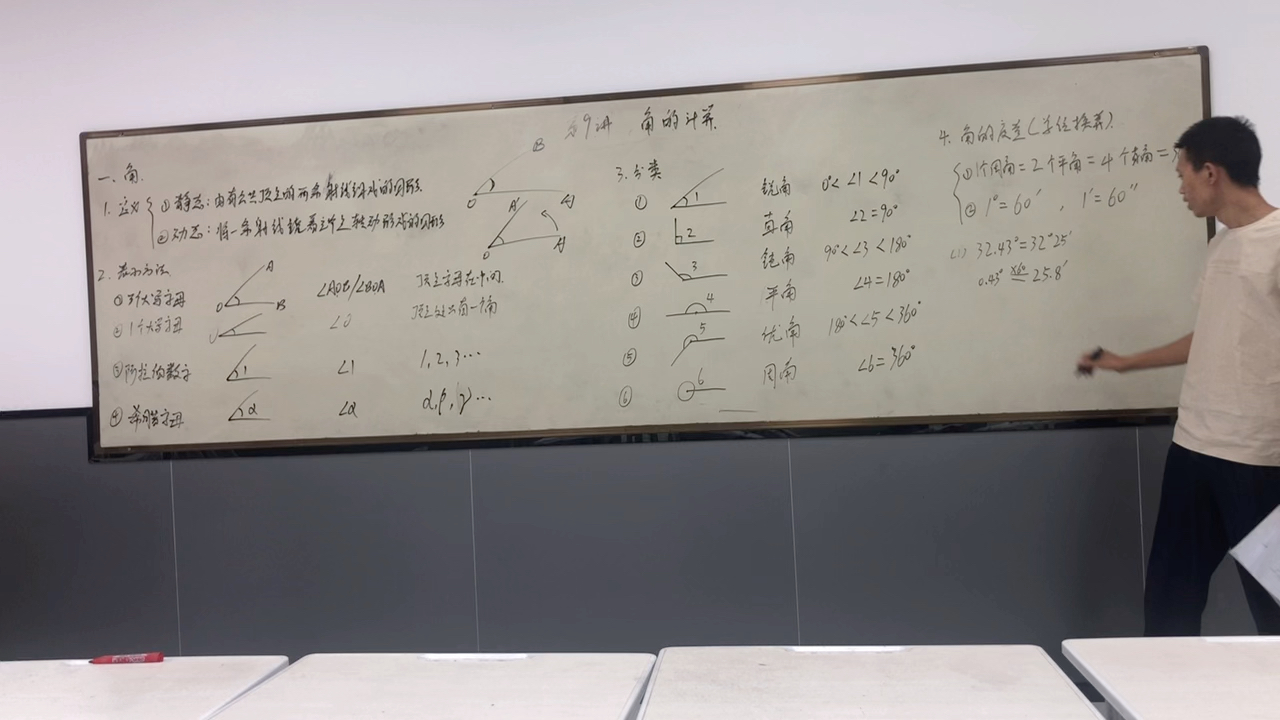 第9讲 角的计算
一、角.
1. 定义
① 静态：由有公共顶点的两条射线组成的图形.
② 动态：将一条射线绕着立点转动形成的图形
B
O
A
A'
O
A
2. 表示方法
① 3个大写字母 O A B ∠AOB/∠BOA 顶点字母在中间.
② 1个大写字母 O ∠O 顶点处只有一个角
③ 阿拉伯数字 1 ∠1 1, 2, 3…
④ 希腊字母 α ∠α α, β, γ…
3. 分类
① 1 锐角 0°<∠1<90°
② 2 直角 ∠2=90°
③ 3 钝角 90°<∠3<180°
④ 4 平角 ∠4=180°
⑤ 5 优角 180°<∠5<360°
⑥ 6 周角 ∠6=360°
4. 角的度量(单位换算).
① 1个周角=2个平角=4个直角=3
② 1°=60′ , 1′=60″
(1) 32.43°=32°25′
0.43° ×60 = 25.8′